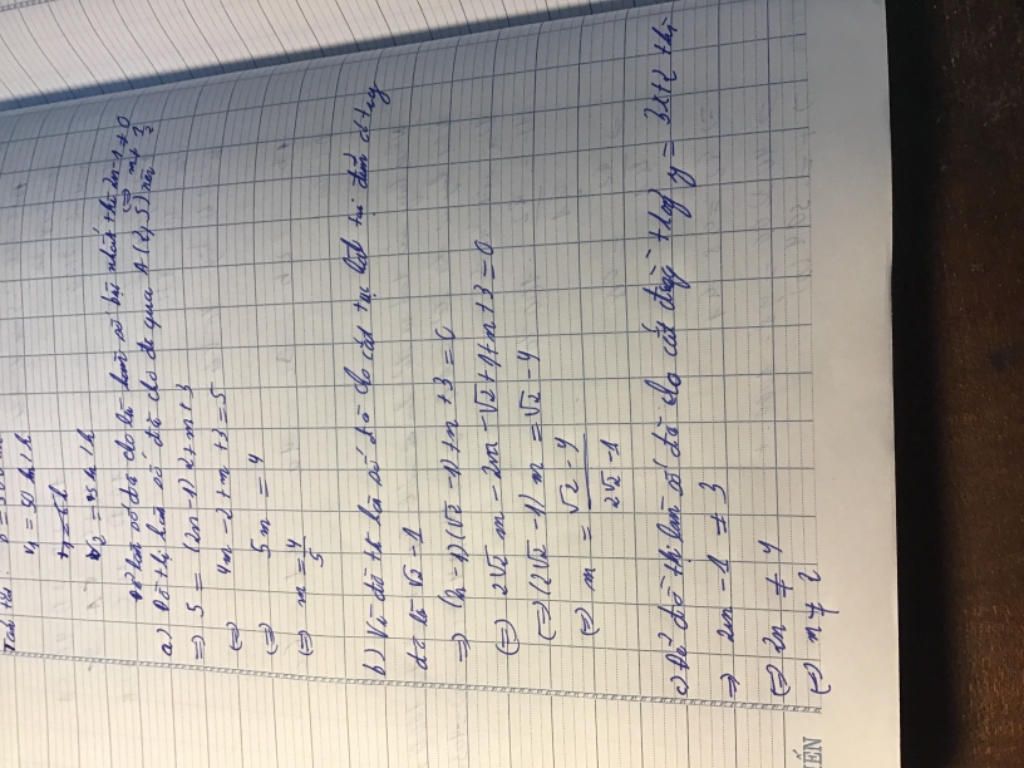 v₁ = 50 km/h
v₂ = km/h
Để hàm số đã cho là hàm số bậc nhất thì 2m-1 ≠ 0
⇔ m ≠ 1/2
a) Đồ thị hàm số đã cho đi qua A(2,5) nên
⇒ 5 = (2m-1)2+m+3
⇔ 4m-2+m+3=5
⇔ 5m = 4
⇔ m = 4/5
b) Vì đồ thị hàm số đã cho cắt trục tại điểm
√2-1
⇒ (2m-1)(√2-1)+m+3=0
⇔ 2√2m-2m-√2+1+m+3=0
⇔ (2√2-1)m=√2-4
⇔ m = √2-4/2√2-1
c) Để đồ thị hàm số đã cho cắt đường thẳng y = 3x+2 thì
⇒ 2m-1 ≠ 3
⇔ 2m ≠ 4
⇔ m ≠ 2
ẾN